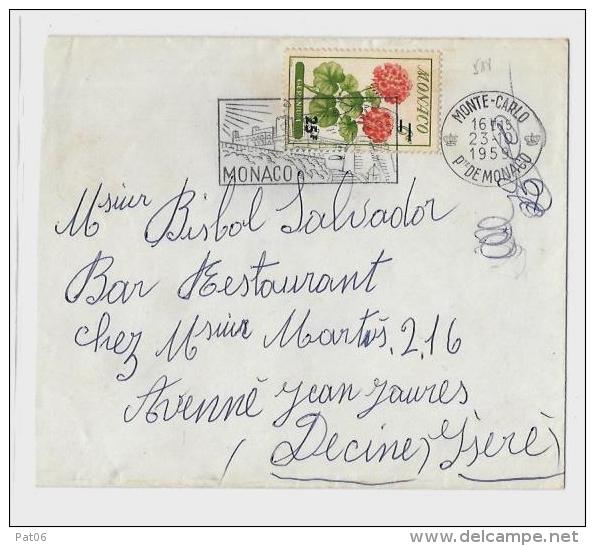 MONACO
GERANIUM
25F
MONTE-CARLO
16H15
1959
PTE DE MONACO
MONACO
Msieur Bisbol Salvador
Bar Restaurant
chez Msieur Martis, 216
Avenné jean jaures
(Decine) Yserè)
Pat06
delcampe.net